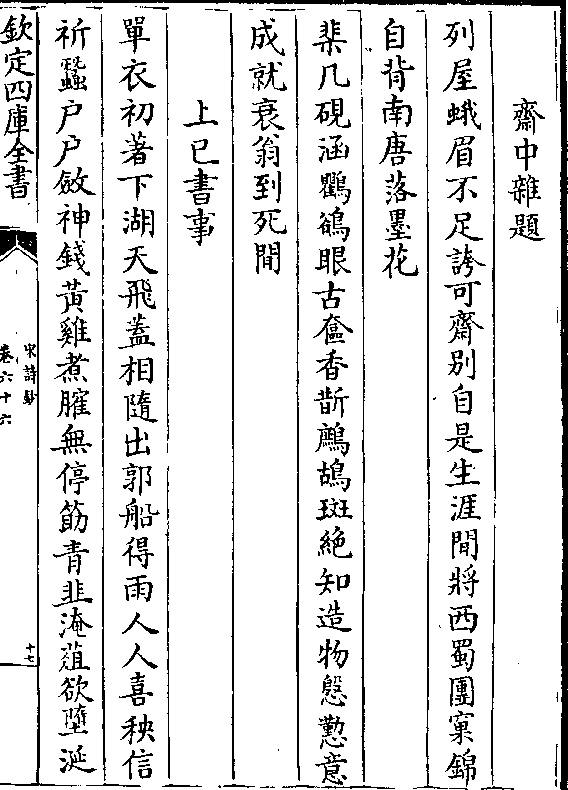 齋中雜題
列屋蛾眉不足誇可齋別自是生涯閒將西蜀團窠錦
自背南唐落墨花
棐几硯涵鸜鵒眼古奩香斮鷓鴣斑絶知造物慇懃意
成就衰翁到死閒
上巳書事
單衣初著下湖天飛蓋相隨出郭船得雨人人喜秧信
祈蠶户户斂神錢黃雞煮臛無停筯青韭淹葅欲墮涎
欽定四庫全書
宋詩鈔
卷六十六
十七